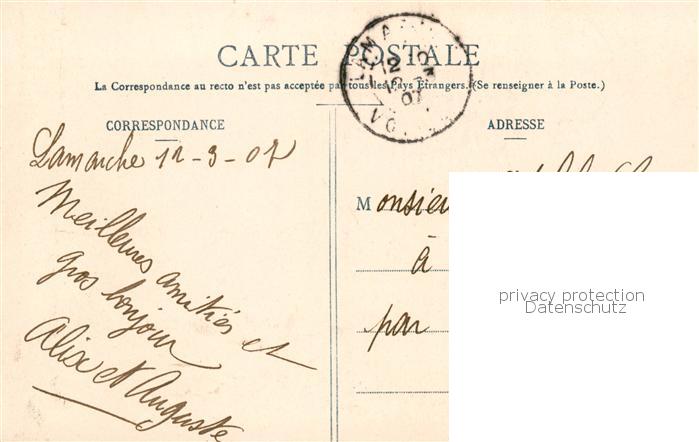 CARTE POSTALE
La Correspondance au recto n'est pas acceptée par tous les Pays Étrangers. (Se renseigner à la Poste.)
CORRESPONDANCE
Lamarche 12-3-07
Meilleures amitiés et
gros bonjour
Alix et Auguste
ADRESSE
Monsieur
à
par
privacy protection
Datenschutz